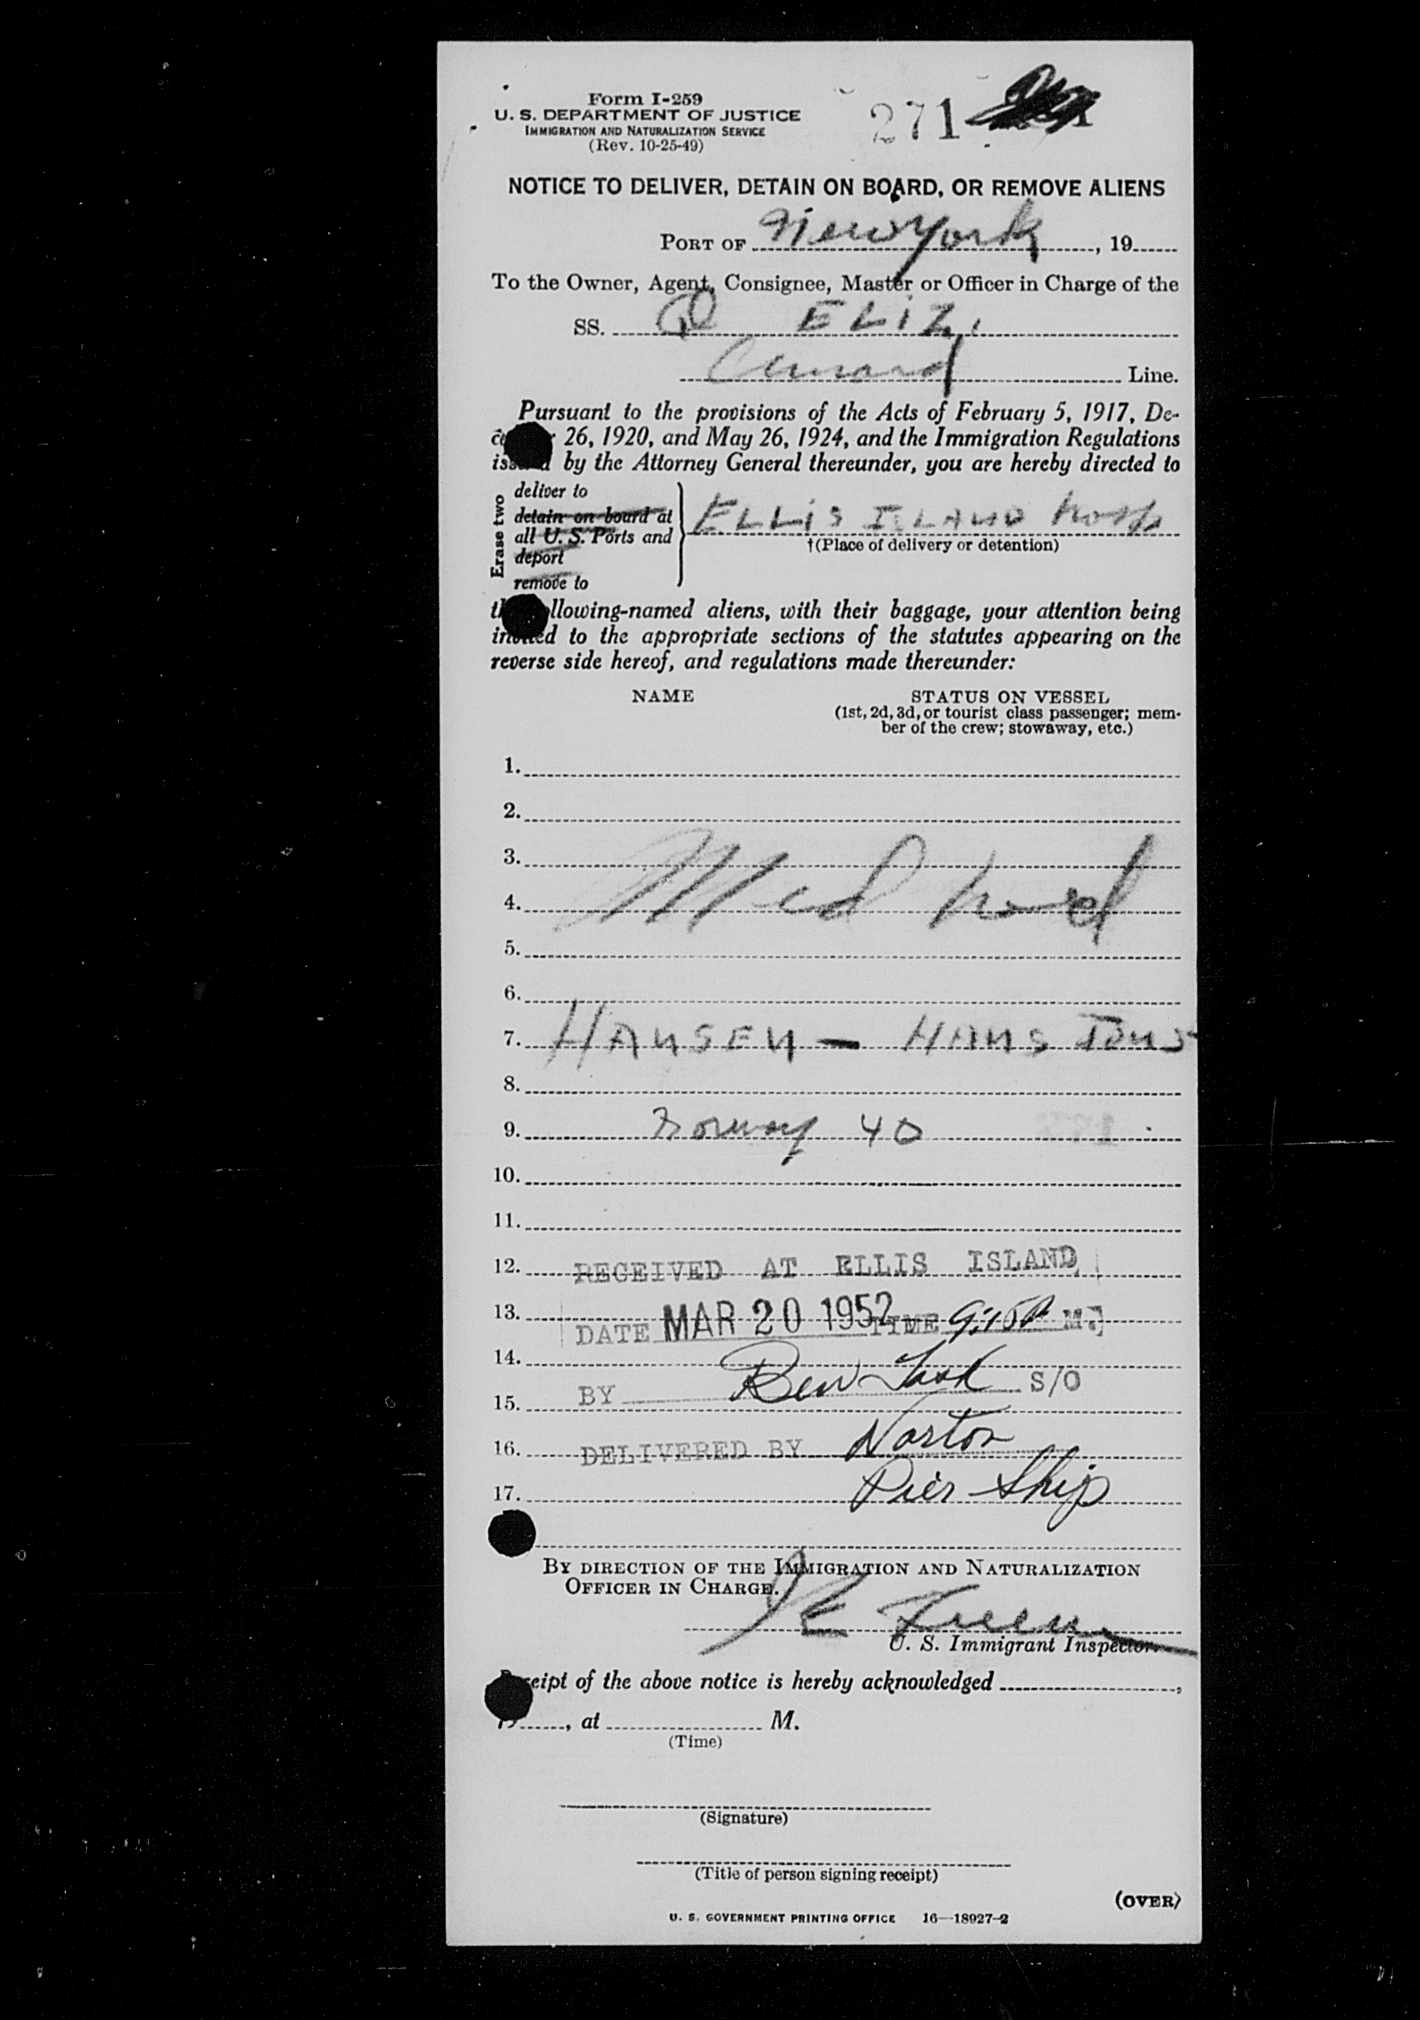 Form I-259
U. S. DEPARTMENT OF JUSTICE
IMMIGRATION AND NATURALIZATION SERVICE
(Rev. 10-25-49)
271
NOTICE TO DELIVER, DETAIN ON BOARD, OR REMOVE ALIENS
PORT OF New York, 19
To the Owner, Agent, Consignee, Master or Officer in Charge of the
SS. Q ELIZ.
Cunard Line.
Pursuant to the provisions of the Acts of February 5, 1917, De-
26, 1920, and May 26, 1924, and the Immigration Regulations
issued by the Attorney General thereunder, you are hereby directed to
Erase two
deliver to
detain on board at
all U. S. Ports and
deport
remove to
ELLIS ISLAND Hosp
†(Place of delivery or detention)
the following-named aliens, with their baggage, your attention being
invited to the appropriate sections of the statutes appearing on the
reverse side hereof, and regulations made thereunder:
NAME STATUS ON VESSEL
(1st, 2d, 3d, or tourist class passenger; mem-
ber of the crew; stowaway, etc.)
1.
2.
3.
4. Med
5.
6.
7. HANSEN — HANS
8.
9. Norway 40
10.
11.
12. RECEIVED AT ELLIS ISLAND
13. DATE MAR 20 1952 TIME 9:15P M.
14.
BY Ben S/O
15.
16. DELIVERED BY Norton
17. Pier Ship
BY DIRECTION OF THE IMMIGRATION AND NATURALIZATION
OFFICER IN CHARGE.
U. S. Immigrant Inspector.
Receipt of the above notice is hereby acknowledged ,
19 , at M.
(Time)
(Signature)
(Title of person signing receipt)
(OVER)
U. S. GOVERNMENT PRINTING OFFICE 16—18927-2